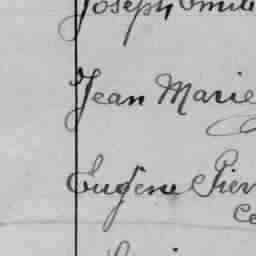 Joseph Emile
Jean Marie
Eugène Pier
Ce